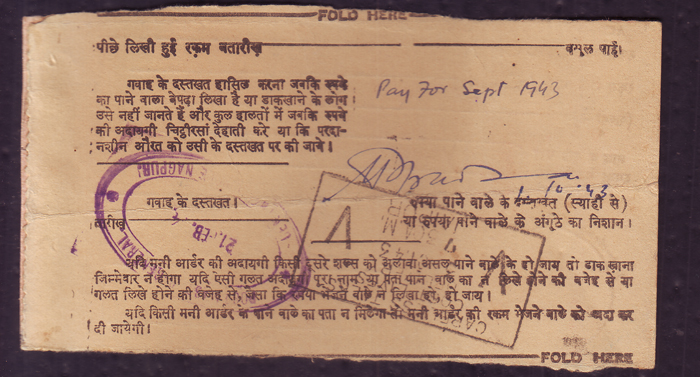 FOLD HERE
पीछे लिखी हुई रकम बतारीख वसूल पाई।
गवाह के दस्तखत हासिल करना जबकि रुपये
का पाने वाला बेपढ़ा लिखा है या डाकखाने के लोग
उसे नहीं जानते हैं और कुल हालतों में जबकि रुपये
की अदायगी चिट्ठीरसां देहाती करे या कि परदा-
नशीन औरत को उसी के दस्तखत पर की जावे।
Pay For Sept 1943
1.10.43
गवाह के दस्तखत।
रुपया पाने वाले के दस्तखत (स्याही से)
तारीख
या रुपया पाने वाले के अंगूठे का निशान।
NAGPUR
21 FEB.
यदि मनी आर्डर की अदायगी किसी दूसरे शख्स को अलावा असल पाने वाले के हो जाय तो डाकखाना
जिम्मेवार न होगा यदि ऐसी गलत अदायगी पूरा नाम या पता पाने वाले का न लिखे होने की वजह से या
गलत लिखे होने की वजह से, जैसा कि रुपया भेजने वाले ने लिखा हो, हो जाय।
यदि किसी मनी आर्डर के पाने वाले का पता न मिलेगा तो मनी आर्डर की रकम भेजने वाले को अदा कर
दी जायेगी।
FOLD HERE